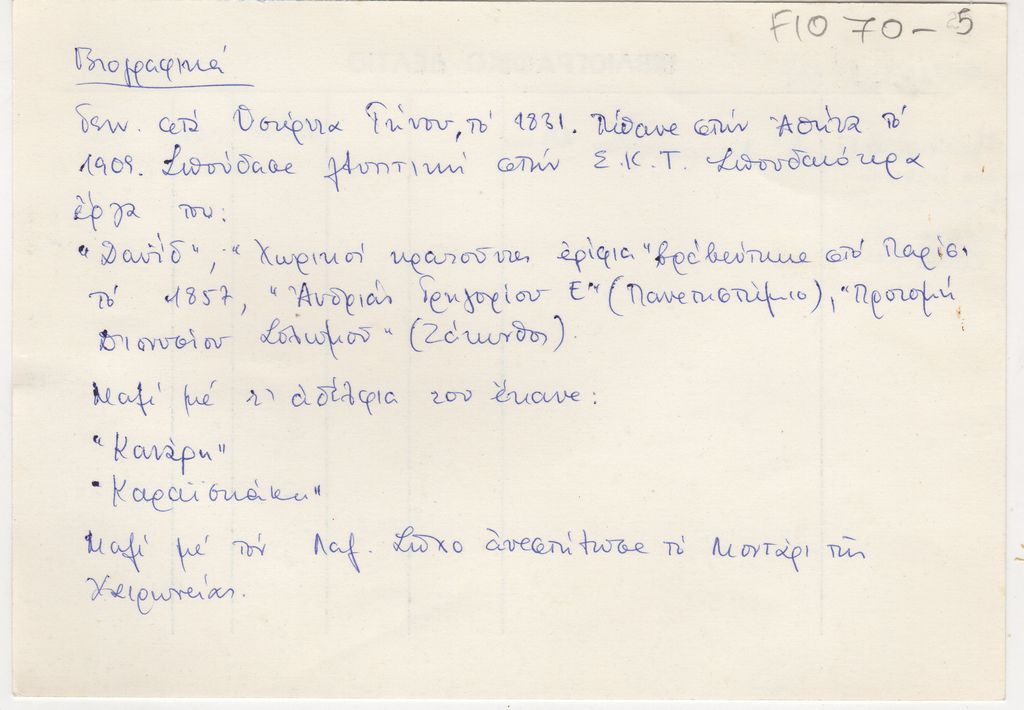 F10 70-5
Βιογραφικά
Γενν. στά Ὑστέρνια Τήνου, τό 1831. Πέθανε στήν Ἀθήνα τό
1909. Σπούδασε γλυπτική στήν Σ.Κ.Τ. Σπουδαιότερα
ἔργα του:
"Δαυΐδ", "Χωρικοί κρατοῦντες ἐρίφια" βραβεύτηκε στό Παρίσι
τό 1857, "Ἀνδριάς Γρηγορίου Ε'" (Πανεπιστήμιο), "Προτομή
Διονυσίου Σολωμοῦ" (Ζάκυνθος).
Μαζί μέ τ' ἀδέλφια του ἔκανε:
"Κανάρη"
"Καραϊσκάκη"
Μαζί μέ τόν Λαζ. Σῶχο ἀνεστήλωσε τό Λιοντάρι τῆς
Χαιρωνείας.